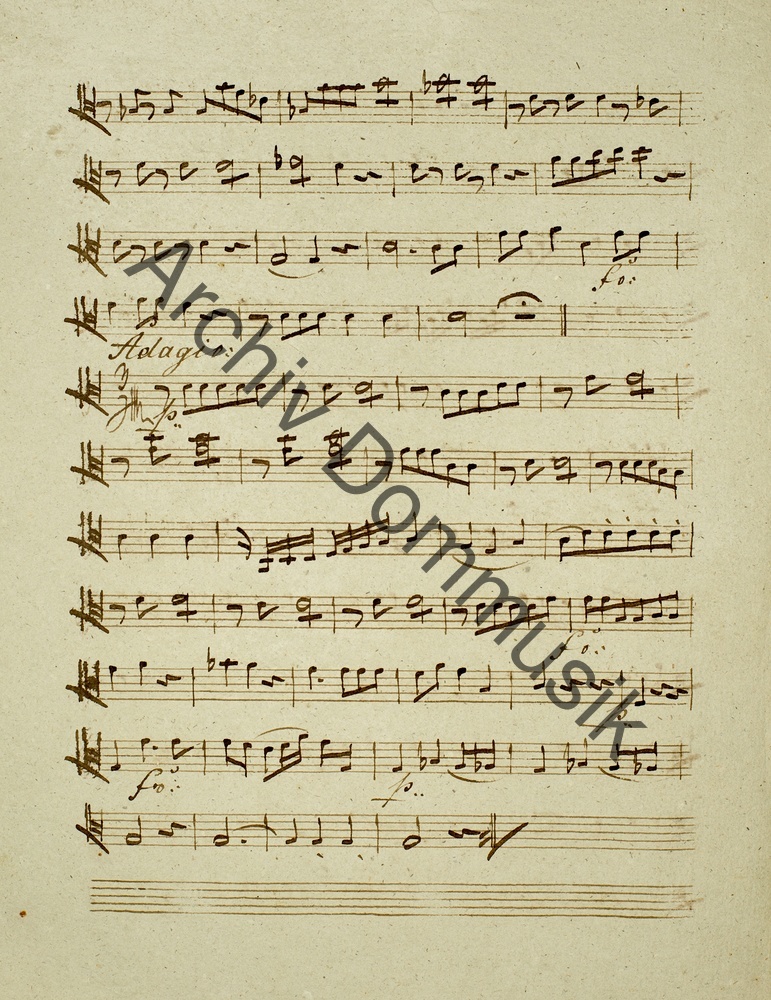 fo:
Adagio:
3
p:
fo:
p:
fo:
p:
Archiv Dommusik